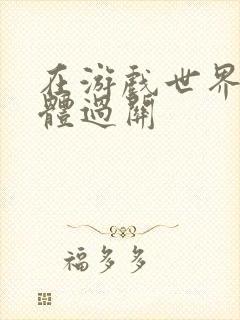 在游戲世界
體過關
福多多